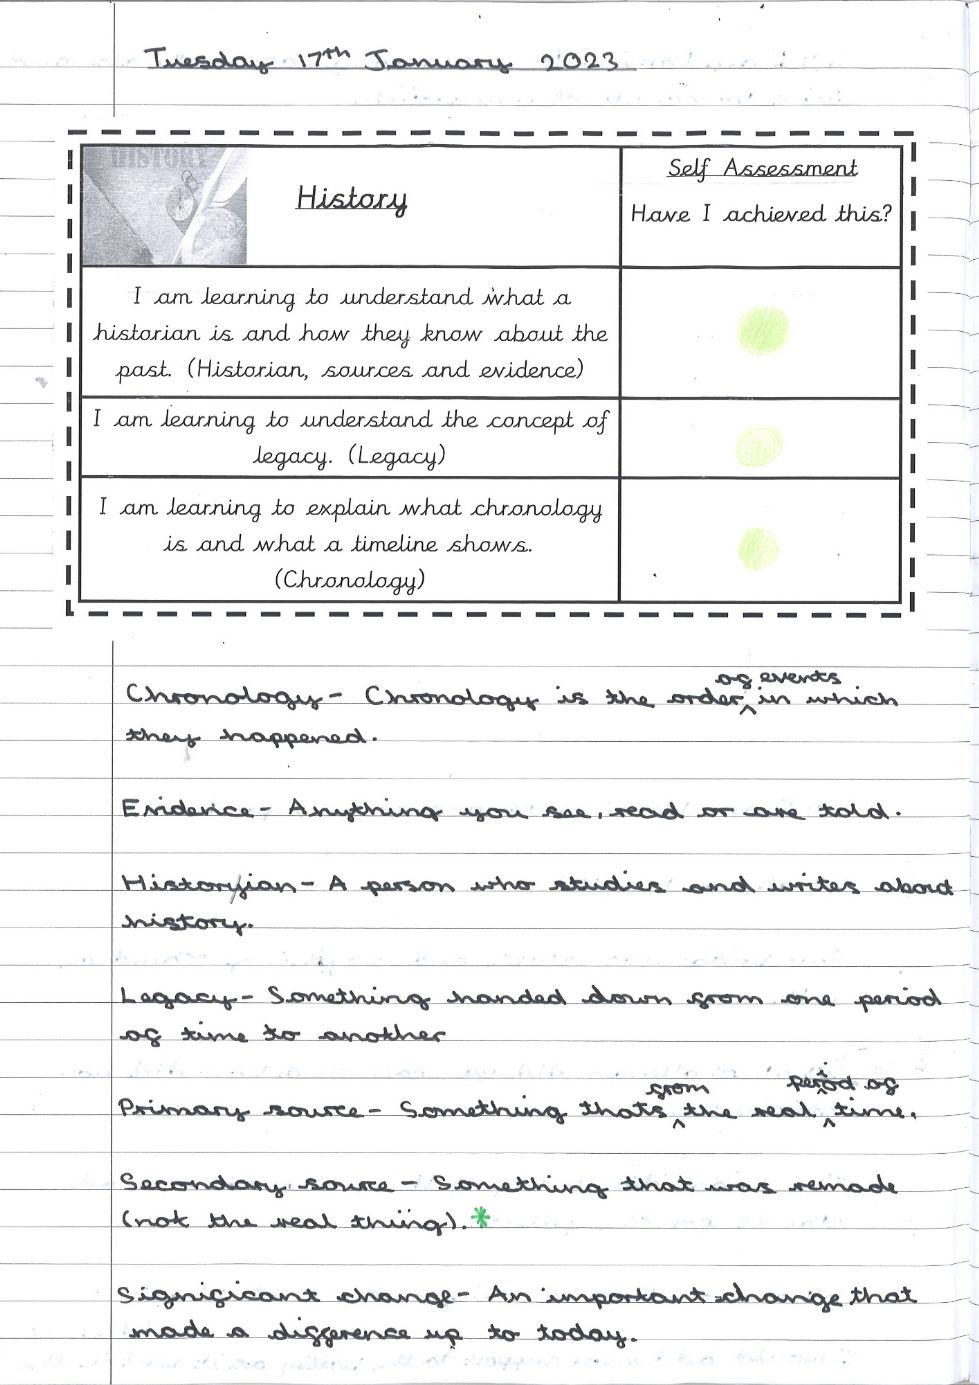 Tuesday 17th January 2023
HISTORY
History
Self Assessment
Have I achieved this?
I am learning to understand what a
historian is and how they know about the
past. (Historian, sources and evidence)
I am learning to understand the concept of
legacy. (Legacy)
I am learning to explain what chronology
is and what a timeline shows.
(Chronology)
of events
Chronology - Chronology is the order ^ in which
they happened.
Evidence - Anything you see, read or are told.
Historyian - A person who studies and writes about
history.
Legacy - Something handed down from one period
of time to another
from period of
Primary source - Something thats ^ the real ^ time.
Secondary source - Something that was remade
(not the real thing). *
Significant change - An important change that
made a difference up to today.